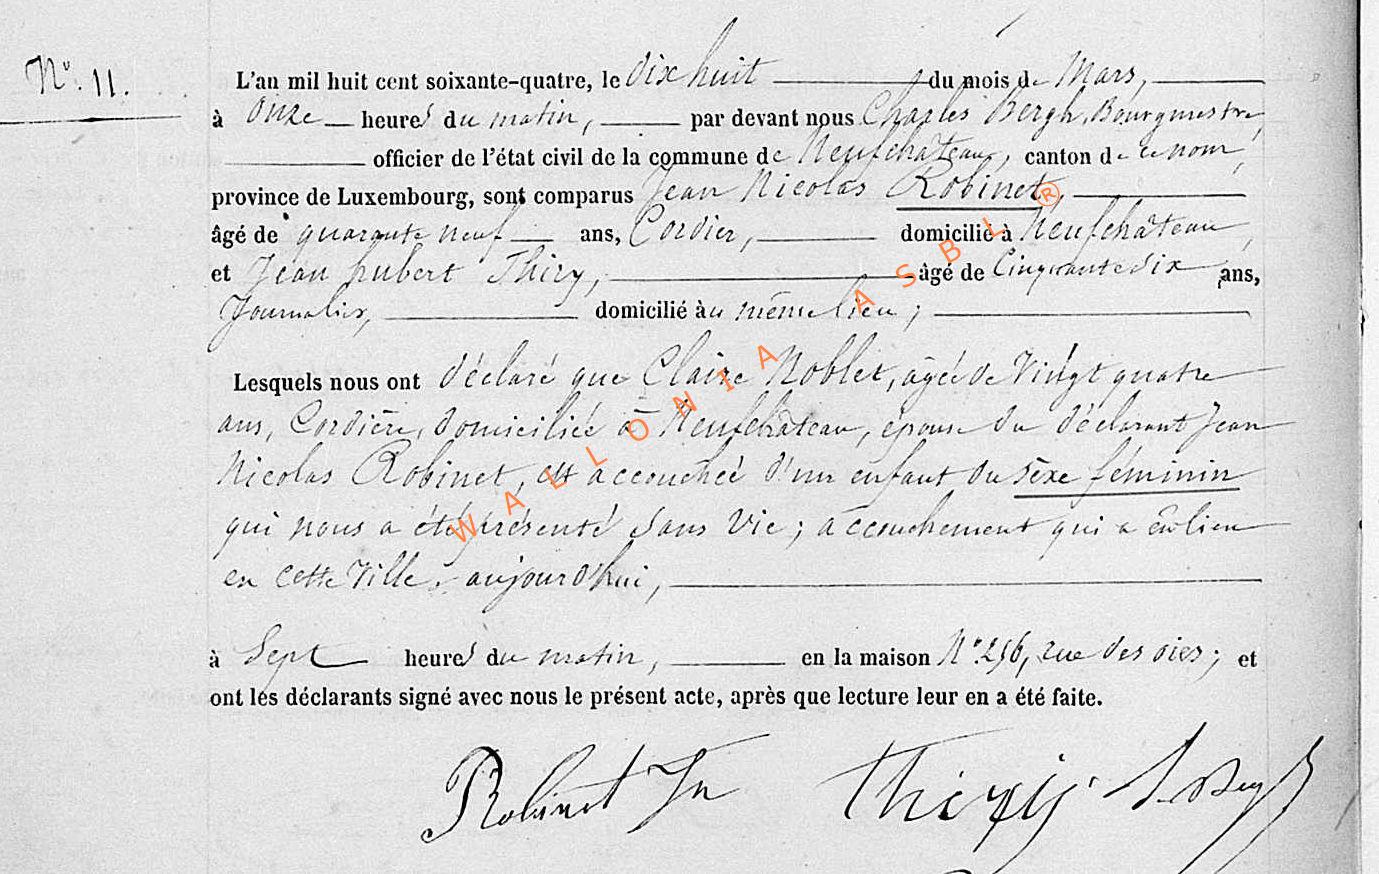 N° 11.
L'an mil huit cent soixante-quatre, le dix huit du mois de Mars,
à onze heures du matin, par devant nous Charles Bergh, Bourgmestre,
officier de l'état civil de la commune de Neufchâteau, canton de ce nom,
province de Luxembourg, sont comparus Jean Nicolas Robinet,
âgé de quarante neuf ans, Cordier, domicilié à Neufchâteau,
et Jean hubert Thiry, âgé de Cinquante dix ans,
Journalier, domicilié au même lieu;
Lesquels nous ont déclaré que Claire Noblet, âgée de Vingt quatre
ans, Cordière, domiciliée à Neufchâteau, épouse du déclarant Jean
Nicolas Robinet, est accouchée d'un enfant du sèxe féminin
qui nous a été présenté sans vie; accouchement qui a eu lieu
en cette Ville, aujourd'hui,
à Sept heures du matin, en la maison N° 256, rue des oies; et
ont les déclarants signé avec nous le présent acte, après que lecture leur en a été faite.
Robinet Jn Thiry
WALLONIA ASBL ®